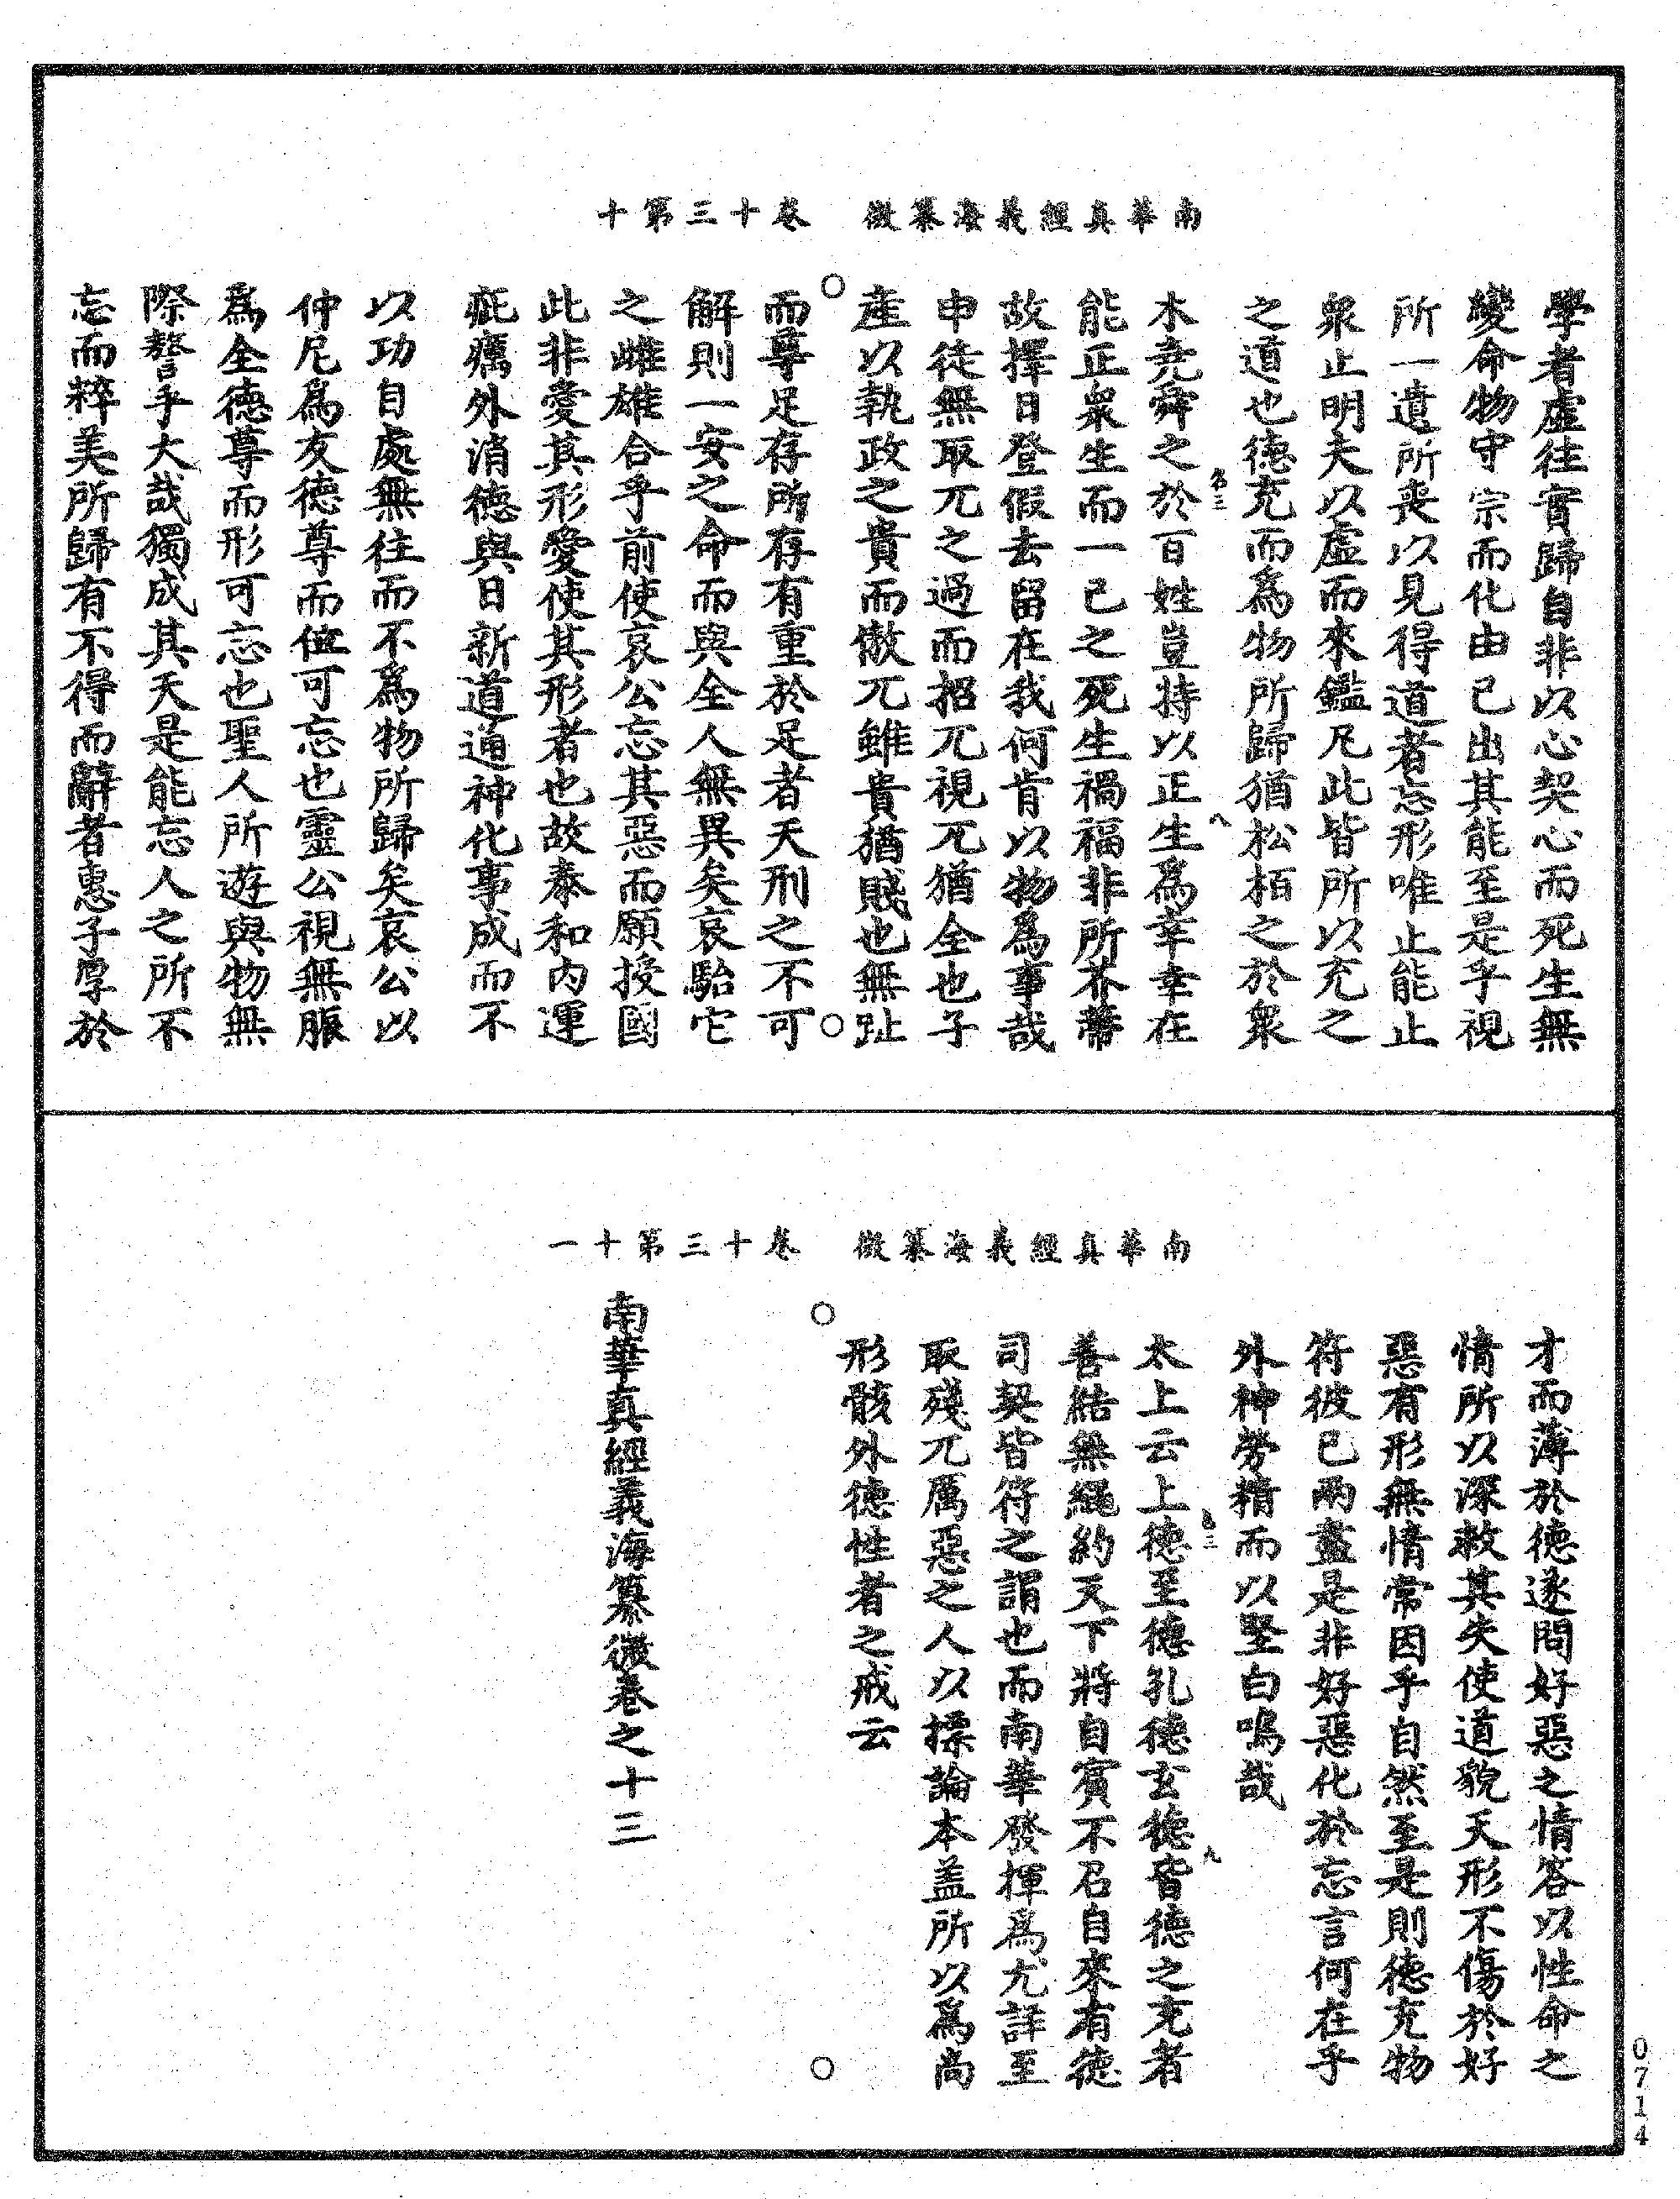 南華真經義海纂微　卷十三第十
學者虛往實歸自非以心契心而死生無
變命物守宗而化由已出其能至是乎視
所一遺所喪以見得道者忘形唯止能止
衆止明夫以虛而來鑑凡此皆所以充之
之道也德充而為物所歸猶松栢之於衆
木堯舜之於百姓豈持以正生爲幸幸在
能正衆生而一已之死生禍福非所芥蔕
故擇日登假去留在我何肯以物爲事哉
申徒無取兀之過而招兀視兀猶全也子
產以執政之貴而傲兀雖貴猶賤也無趾
而尊足存所存有重於足者天刑之不可
解則一安之命而與全人無異矣哀駘它
之雌雄合乎前使哀公忘其惡而願授國
此非愛其形愛使其形者也故泰和内運
疵癘外消德與日新道通神化事成而不
以功自處無往而不爲物所歸矣哀公以
仲尼爲友德尊而位可忘也靈公視無脤
爲全德尊而形可忘也聖人所遊與物無
際謷乎大哉獨成其天是能忘人之所不
忘而粹美所歸有不得而辭者惠子厚於
南華真經義海纂微　卷十三第十一
才而薄於德遂問好惡之情答以性命之
情所以深救其失使道貌天形不傷於好
惡有形無情常因乎自然至是則德充物
符彼已兩盡是非好惡化於忘言何在乎
外神勞精而以堅白鳴哉
太上云上德至德孔德玄德皆德之充者
善結無繩約天下將自賓不召自來有德
司契皆符之謂也而南華發揮爲尤詳至
取殘兀厲惡之人以摽論本盖所以爲尚
形骸外德性者之戒云
南華真經義海纂微卷之十三
0714